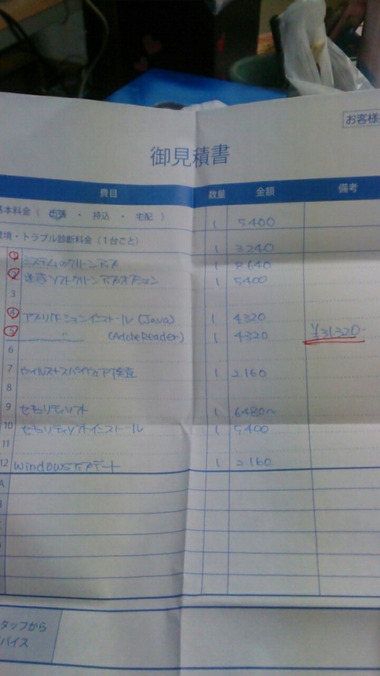 お客様
御見積書
費目 数量 金額 備考
基本料金（ 出張 ・ 持込 ・ 宅配 ） 1 5400
環境・トラブル診断料金（1台ごと） 1 3240
1 システムのクリーンアップ 1 8640
2 迷惑ソフトクリーンアップオプション 1 5400
3
4 アプリケーションインストール (Java) 1 4320
5 〃 (AdobeReader) 1 4320 ¥31320
6
7 ウイルススパイウェア検査 1 2.160
8
9 セキュリティソフト 1 6480〜
10 セキュリティソフトインストール 1 5400
11
12 Windowsアップデート 1 2.160
タッフから
バイス